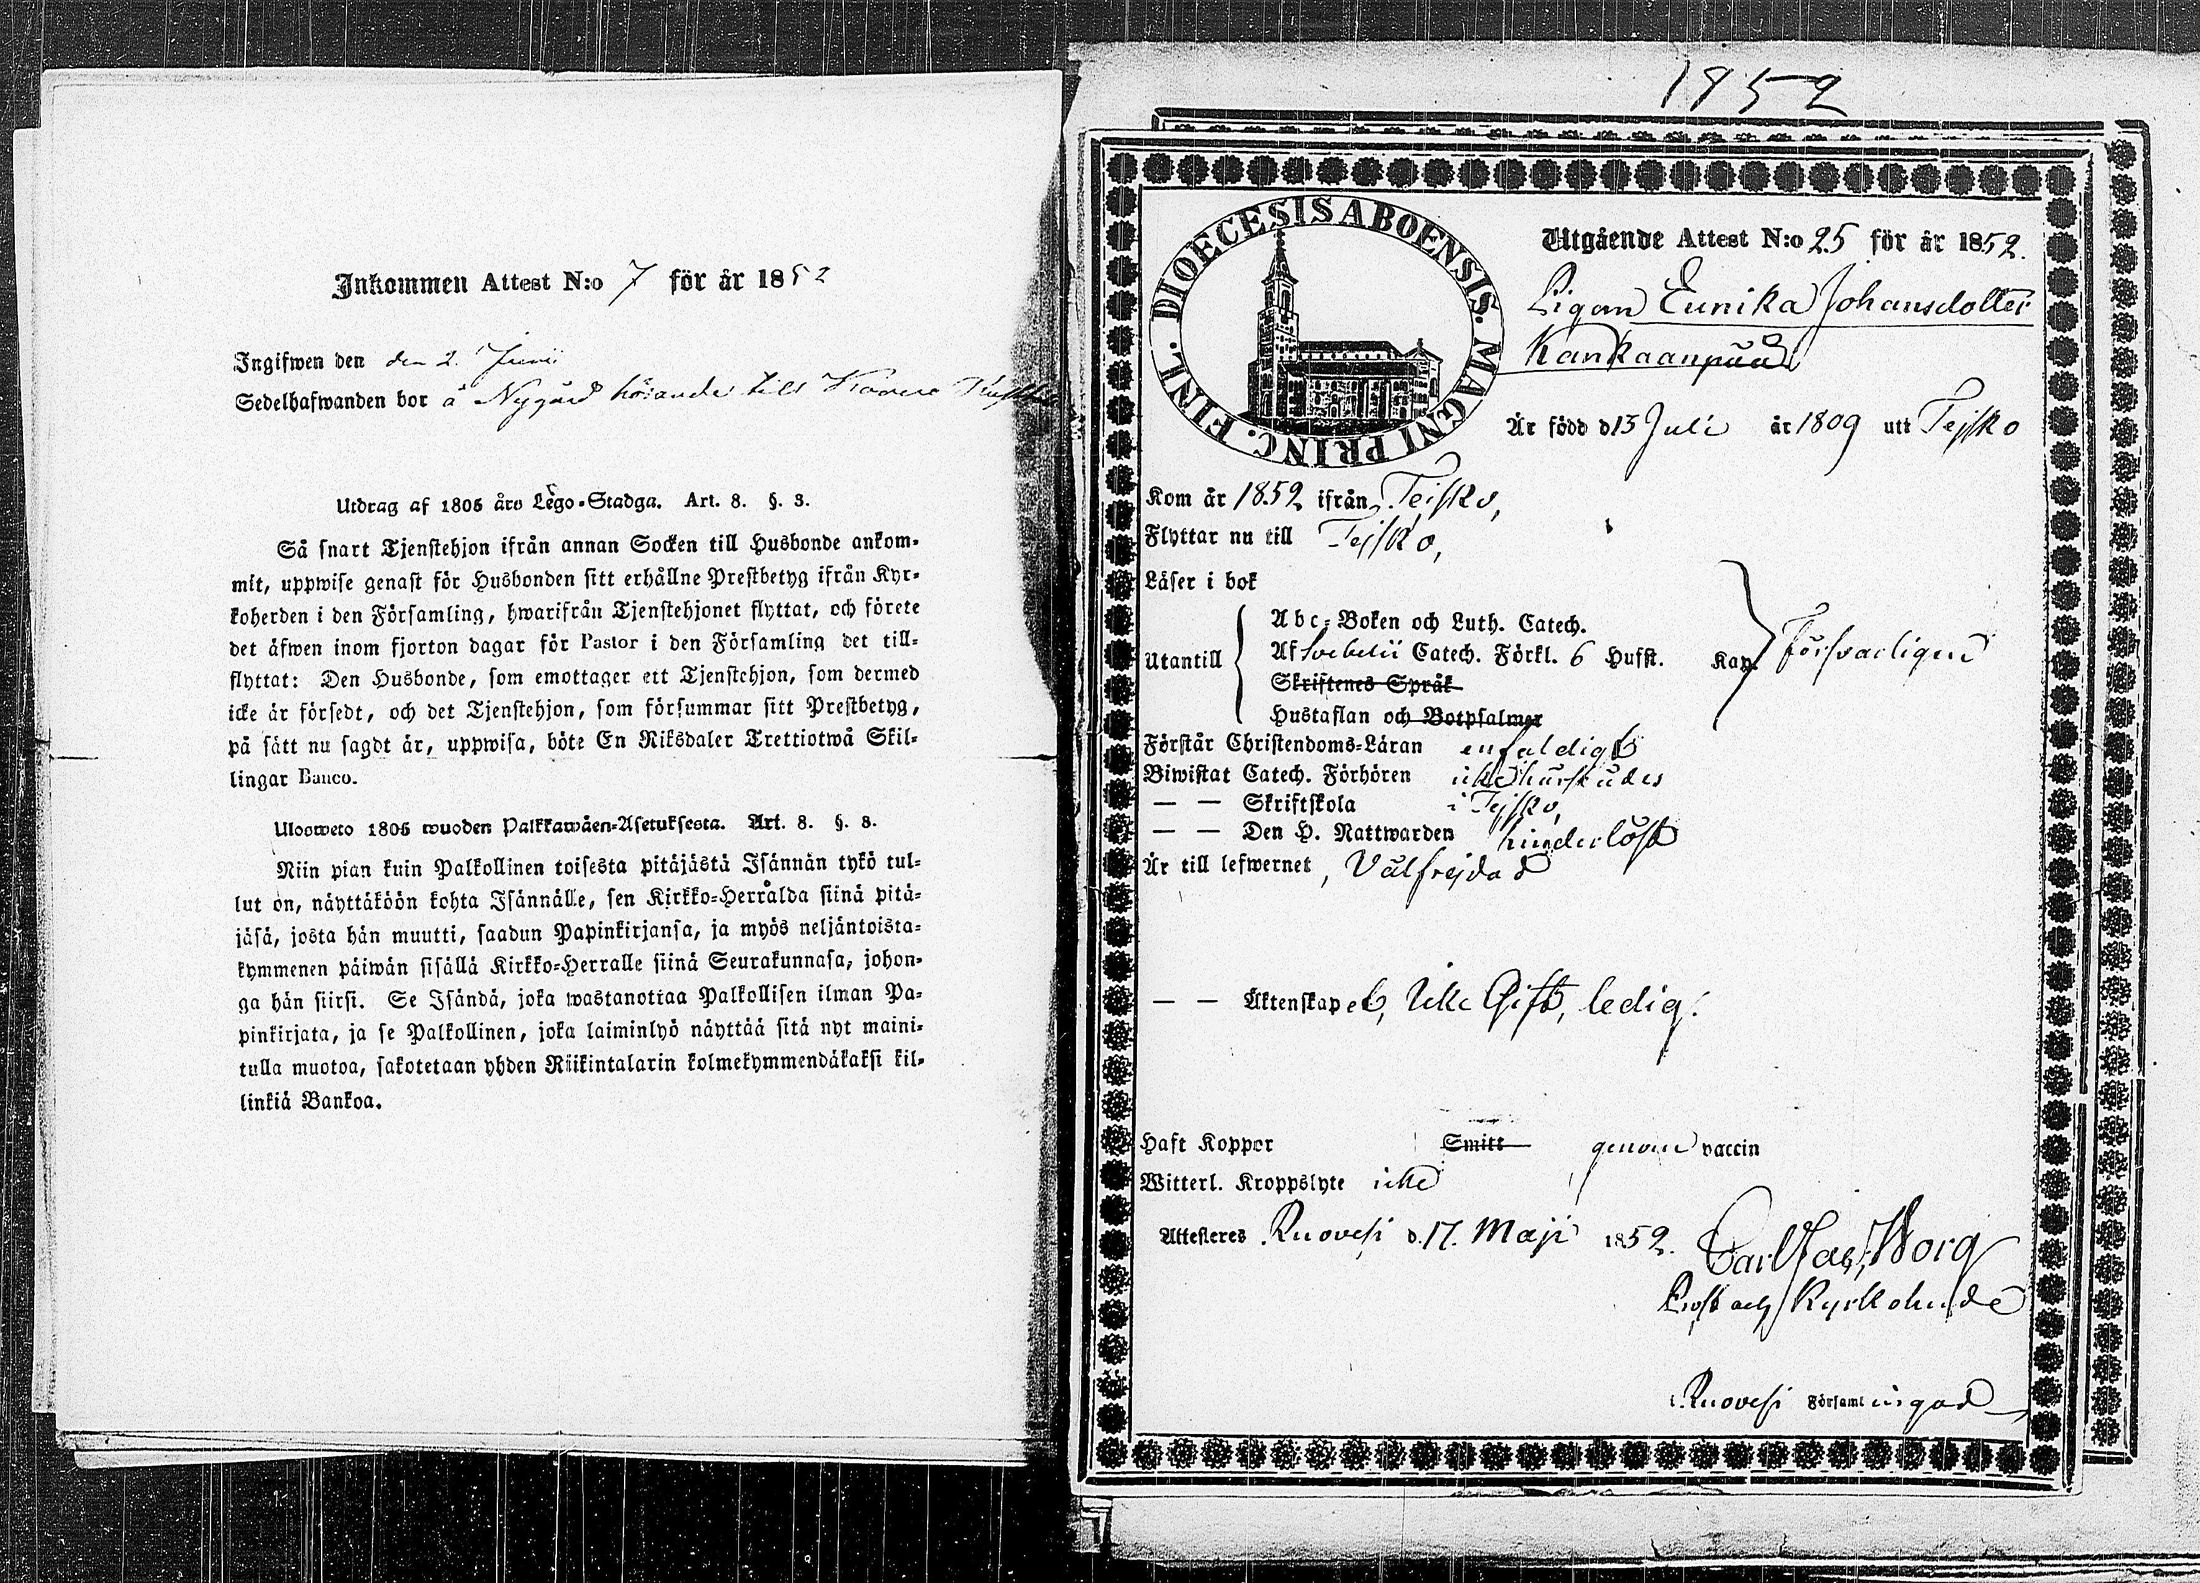 Inkommen Attest N:o 7 för år 1852
Ingifwen den den 2. Junii
Sedelhafwanden bor å Nygård hörande till
Utdrag af 1805 års Lego-Stadga. Art. 8. §. 3.
Så snart Tjenstehjon ifrån annan Socken till Husbonde ankom-
mit, uppwise genast för Husbonden sitt erhållne Prestbetyg ifrån Kyr-
koherden i den Församling, hwarifrån Tjenstehjonet flyttat, och förete
det äfwen inom fjorton dagar för Pastor i den Församling det till-
flyttat: Den Husbonde, som emottager ett Tjenstehjon, som dermed
icke är försedt, och det Tjenstehjon, som försummar sitt Prestbetyg,
på sätt nu sagdt är, uppwisa, böte En Riksdaler Trettiotwå Skil-
lingar Banco.
Ulosweto 1805 wuoden Palkkawäen-Asetuksesta. Art. 8. §. 3.
Niin pian kuin Palkollinen toisesta pitäjästä Isännän tykö tul-
lut on, näyttäköön kohta Isännälle, sen Kirkko-Herralda siinä pitä-
jäsä, josta hän muutti, saadun Papinkirjansa, ja myös neljäntoista-
kymmenen päiwän sisällä Kirkko-Herralle siinä Seurakunnasa, johon-
ga hän siirsi. Se Isändä, joka wastanottaa Palkollisen ilman Pa-
pinkirjata, ja se Palkollinen, joka laiminlyö näyttää sitä nyt maini-
tulla muotoa, sakotetaan yhden Riikintalarin kolmekymmendäkaksi kil-
linkiä Bankoa.
1852
DIOECESIS ABOENSIS. MAGNI PRINC. FINL.
Utgående Attest N:o 25 för år 1852.
Pigan Eunika Johansdotter
Kankaanpää
Är född d 15 Juli år 1809 utt Tejsko
Kom år 1852 ifrån Teisko,
Flyttar nu till Tejsko,
Läser i bok
Utantill
Abc-Boken och Luth. Catech.
Af Svebelii Catech. Förkl. 6 Hufst. Kap. försvarligen
Skriftenes Språk
Hustaflan och Botpsalmer
Förstår Christendoms-Läran enfaldigt
Biwistat Catech. Förhören icke hursudes
— — Skriftskola i Tejsko,
— — Den H. Nattwarden hinderlöst
Är till lefwernet, Välfrejdad
— — Äktenskapet, icke Gift, ledig.
Haft Koppor Smitt genom vaccin
Witterl. Kroppslyte icke
Attesteres Ruovesi d. 17. Maji 1852. Carl Jac. Borg
Prost och Kyrkoherde
i Ruovesi Församlingar